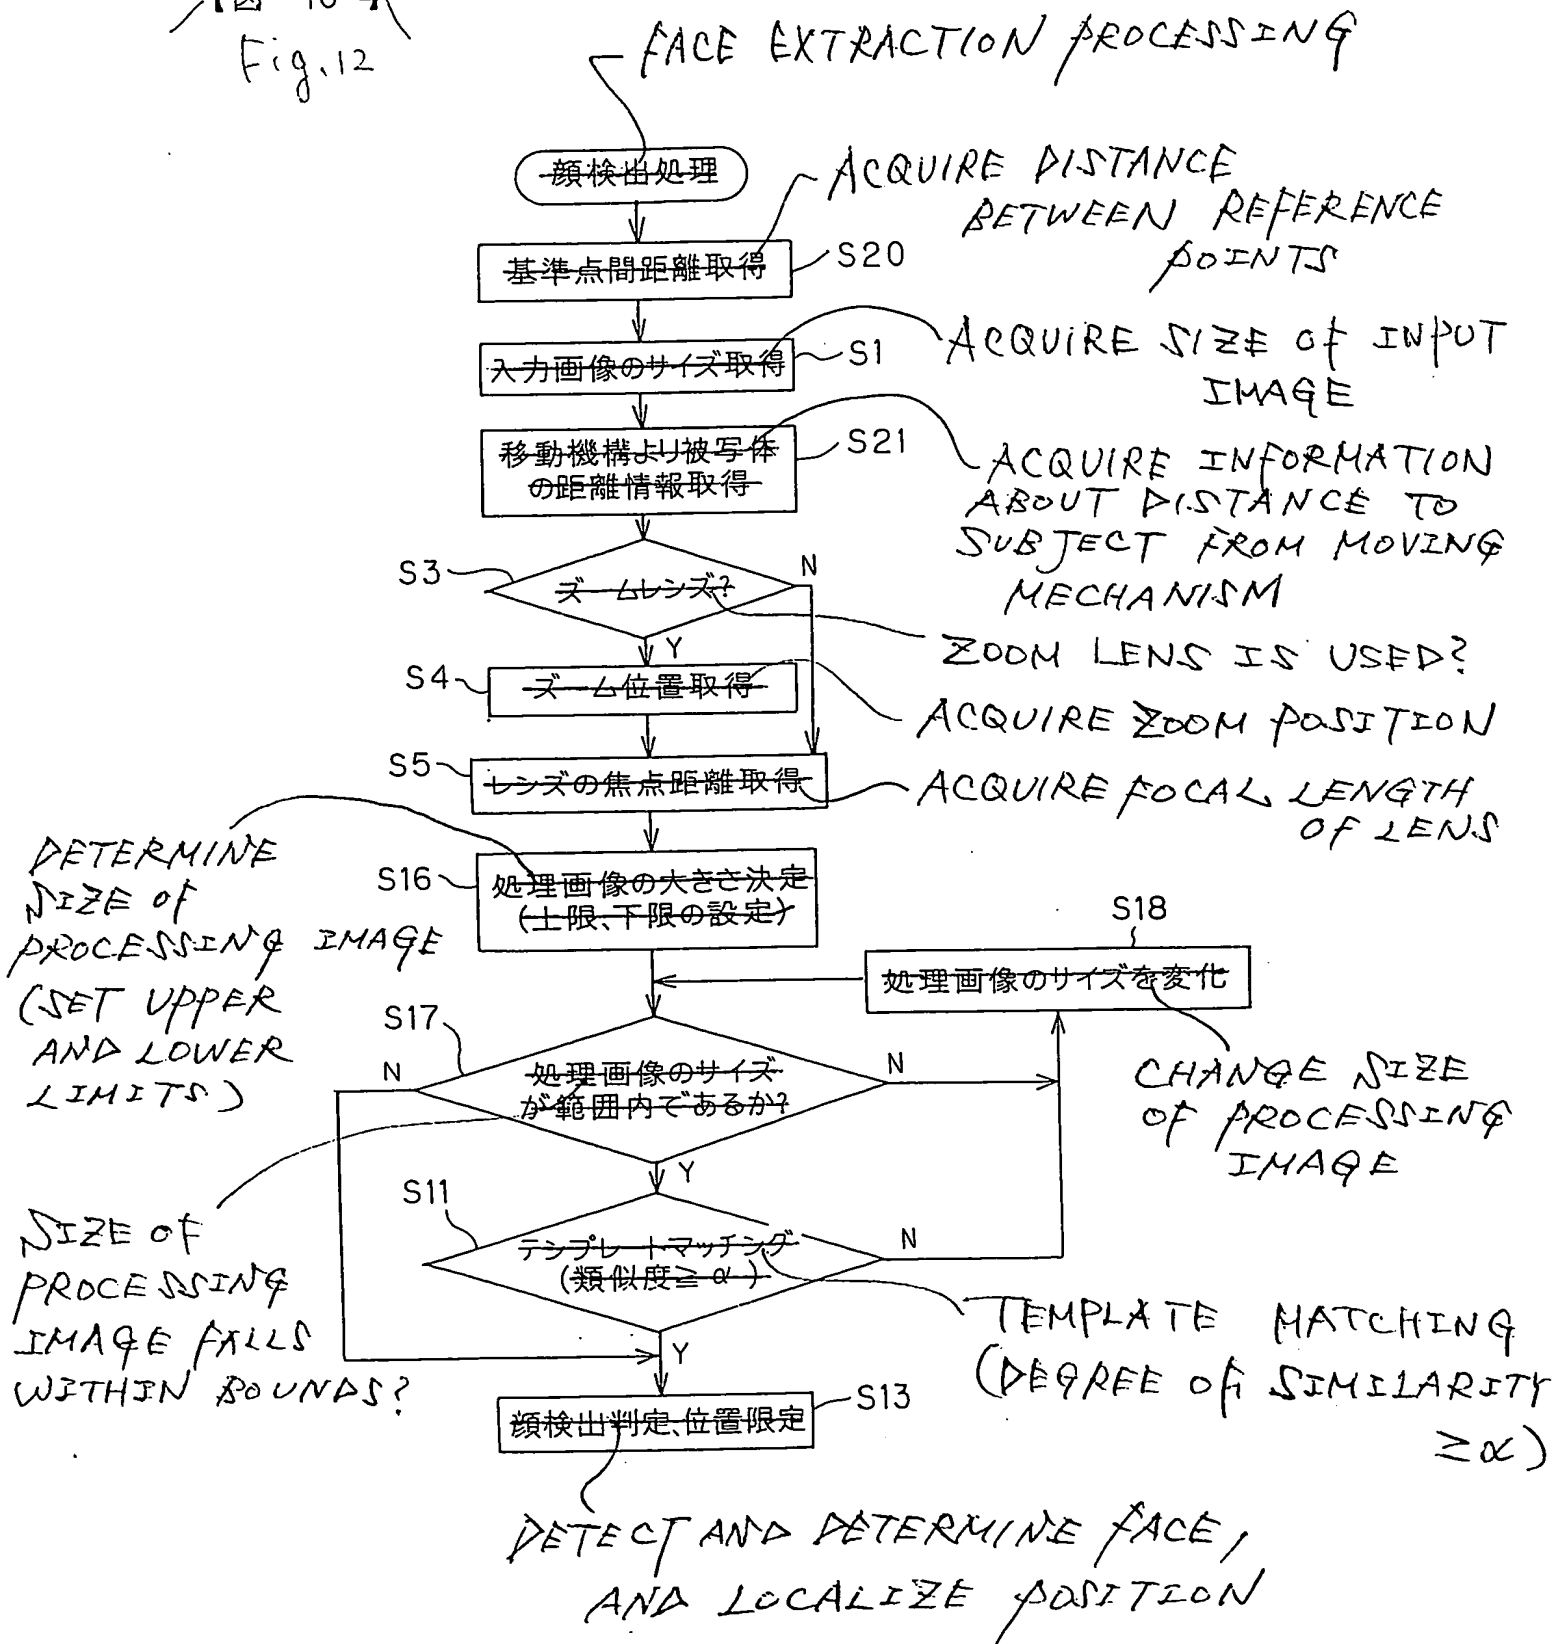 Fig.12
FACE EXTRACTION PROCESSING
顔検出処理
ACQUIRE DISTANCE
BETWEEN REFERENCE
POINTS
基準点間距離取得
S20
入力画像のサイズ取得
S1
ACQUIRE SIZE OF INPUT
IMAGE
移動機構より被写体
の距離情報取得
S21
ACQUIRE INFORMATION
ABOUT DISTANCE TO
SUBJECT FROM MOVING
MECHANISM
S3
ズームレンズ?
N
Y
ZOOM LENS IS USED?
S4
ズーム位置取得
ACQUIRE ZOOM POSITION
S5
レンズの焦点距離取得
ACQUIRE FOCAL LENGTH
OF LENS
DETERMINE
SIZE OF
PROCESSING IMAGE
(SET UPPER
AND LOWER
LIMITS)
S16
処理画像の大きさ決定
(上限、下限の設定)
S18
処理画像のサイズを変化
CHANGE SIZE
OF PROCESSING
IMAGE
S17
N
処理画像のサイズ
が範囲内であるか?
N
Y
SIZE OF
PROCESSING
IMAGE FALLS
WITHIN BOUNDS?
S11
テンプレートマッチング
(類似度≧α)
N
Y
TEMPLATE MATCHING
(DEGREE OF SIMILARITY
≥α)
顔検出判定、位置限定
S13
DETECT AND DETERMINE FACE,
AND LOCALIZE POSITION